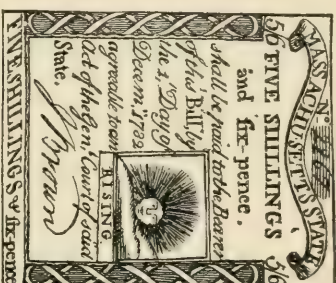 MASSACHUSETTS STATE
5/6 FIVE SHILLINGS 5/6
and ſix-pence.
shall be paid to the Bearer
of this Bill, by
the 1.st Day of
Decem.r 1782
agreable to an
Act of the Gen.l Court of said
State.
RISING
FIVE SHILLINGS & ſix-pence